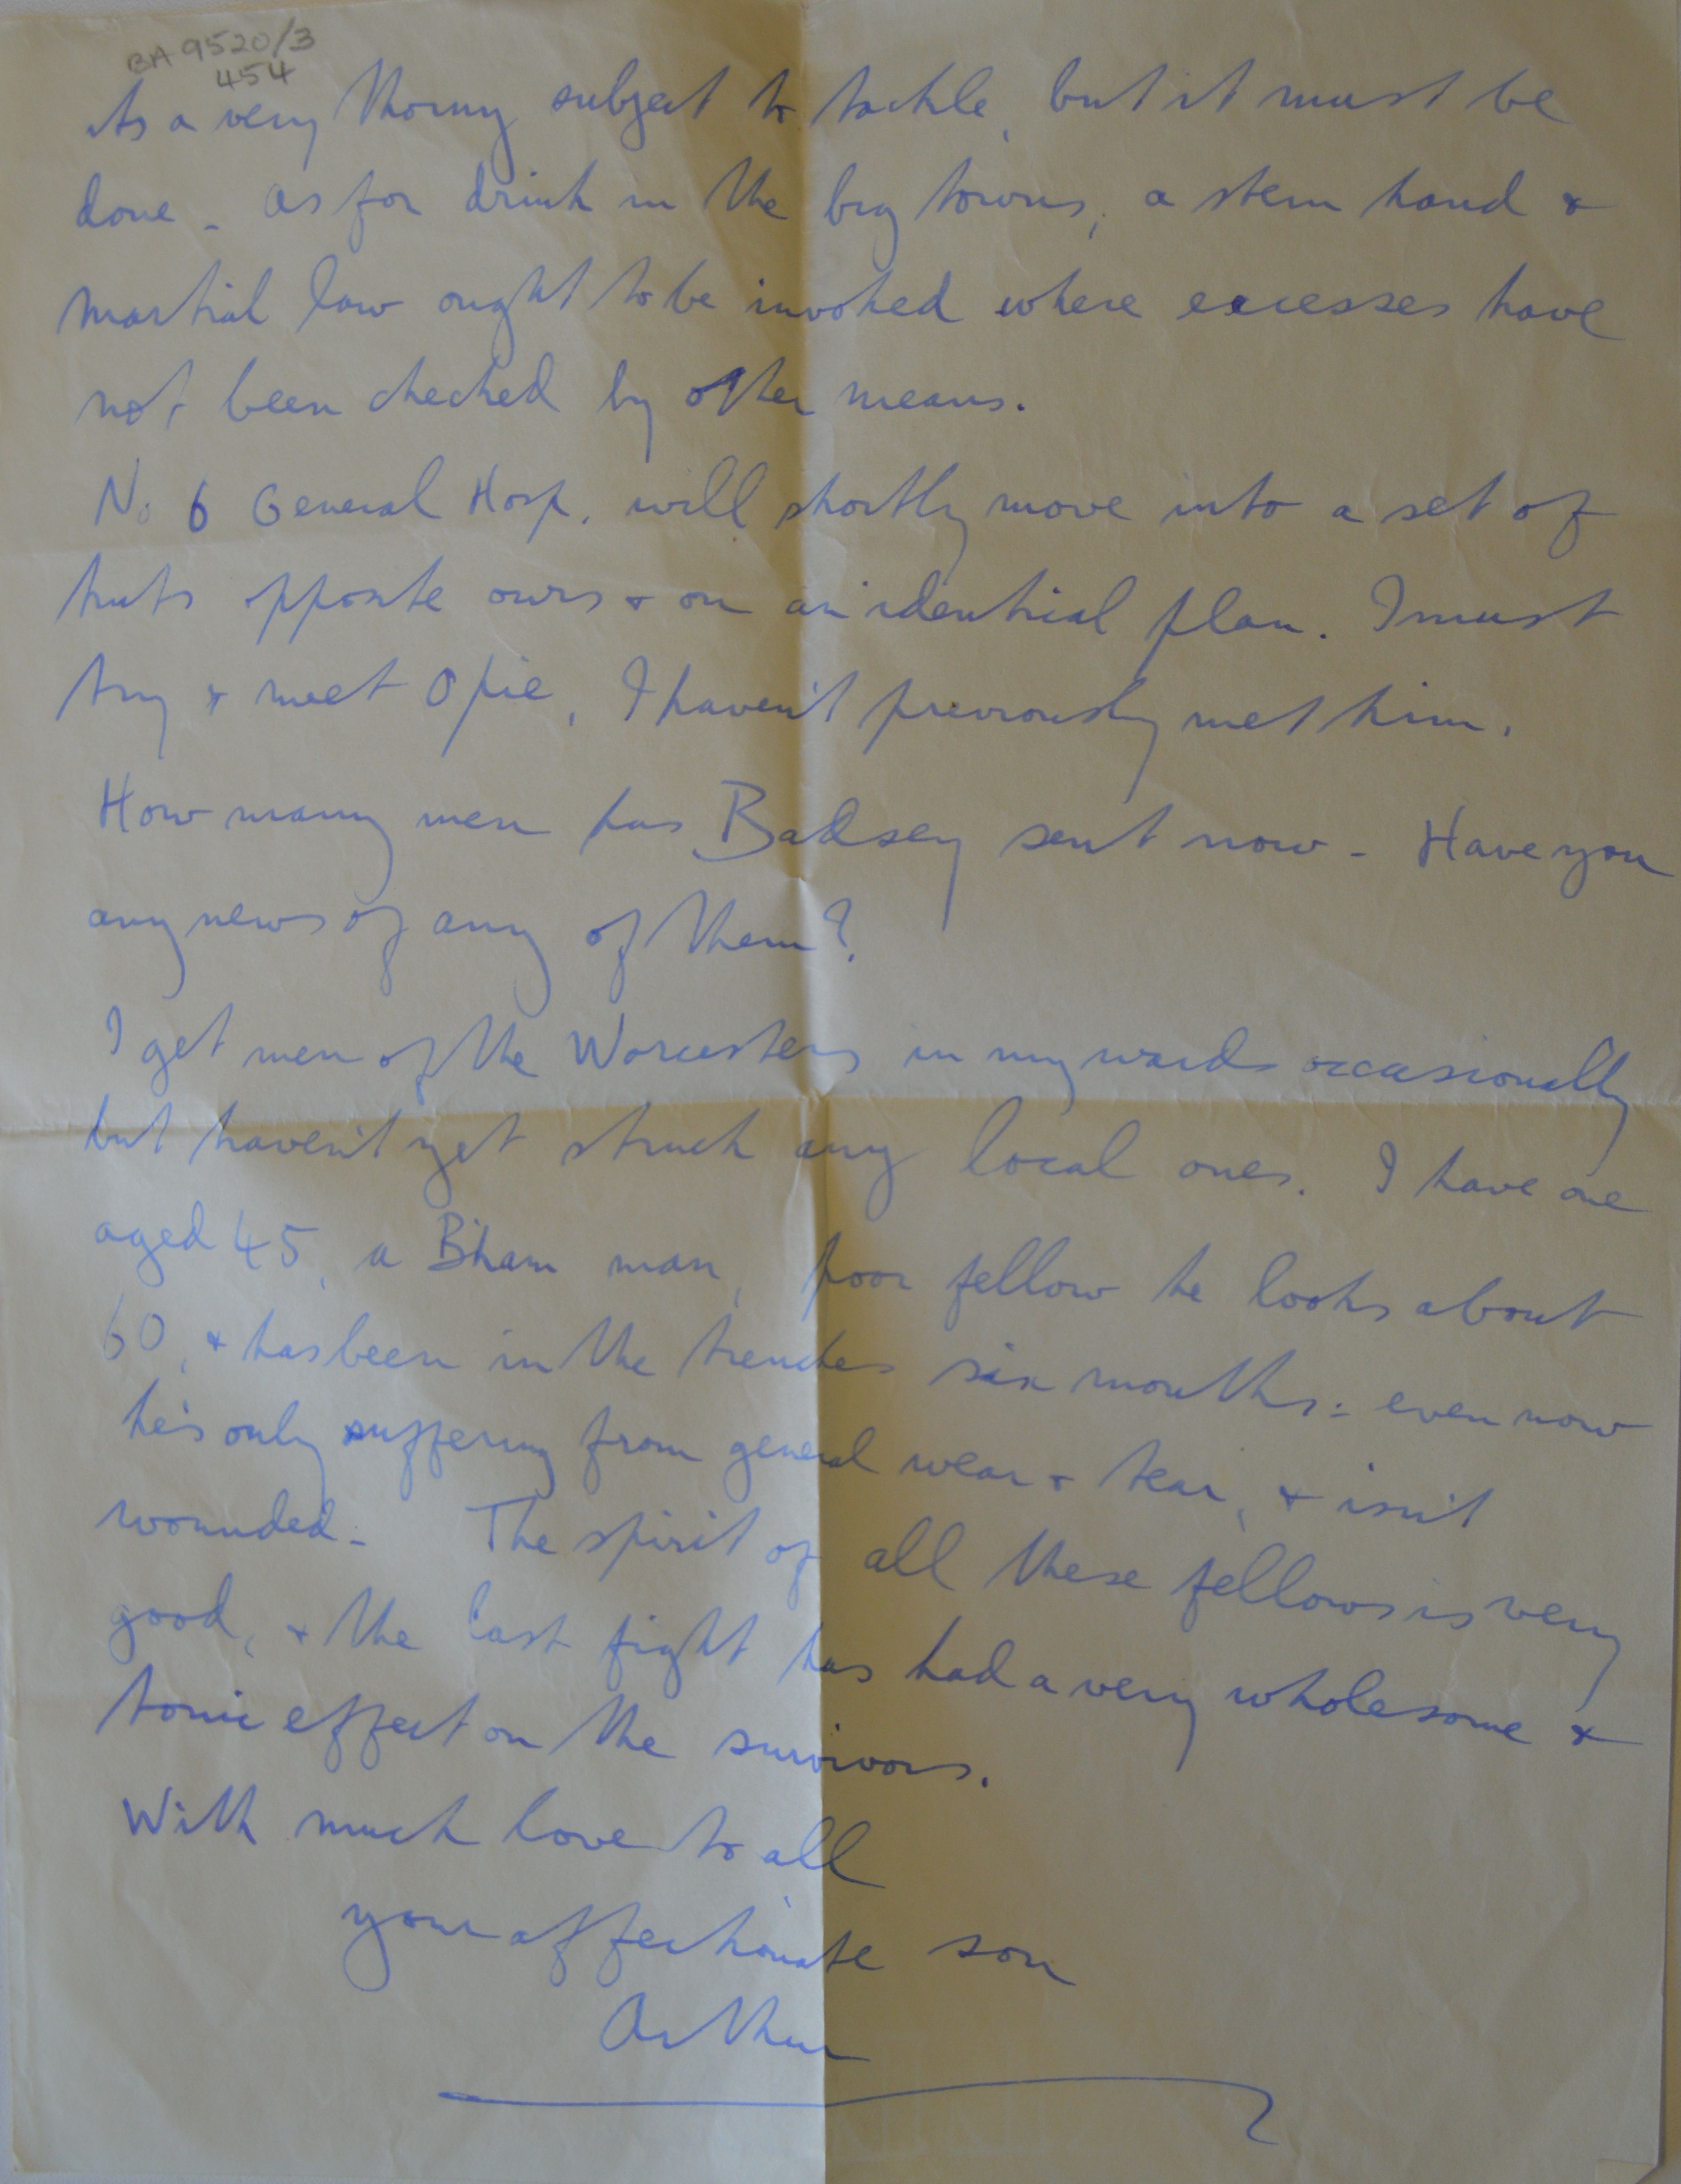 BA 9520/3
454
its a very thorny subject to tackle, but it must be
done - as for drink in the big towns, a stern hand &
martial law ought to be invoked where excesses have
not been checked by other means.
No 6 General Hosp. will shortly move into a set of
huts opposite ours & on an identical plan. I must
try & meet Opie, I haven't previously met him.
How many men has Badsey sent now - Have you
any news of any of them?
I get men of the Worcesters in my wards occasionally
but haven't yet struck any local ones. I have one
aged 45, a B'ham man, poor fellow he looks about
60, & has been in the trenches six months: even now
he's only suffering from general wear & tear, & isn't
wounded - The spirit of all these fellows is very
good, & the last fight has had a very wholesome &
tonic effect on the survivors.
With much love to all
your affectionate son
Arthur